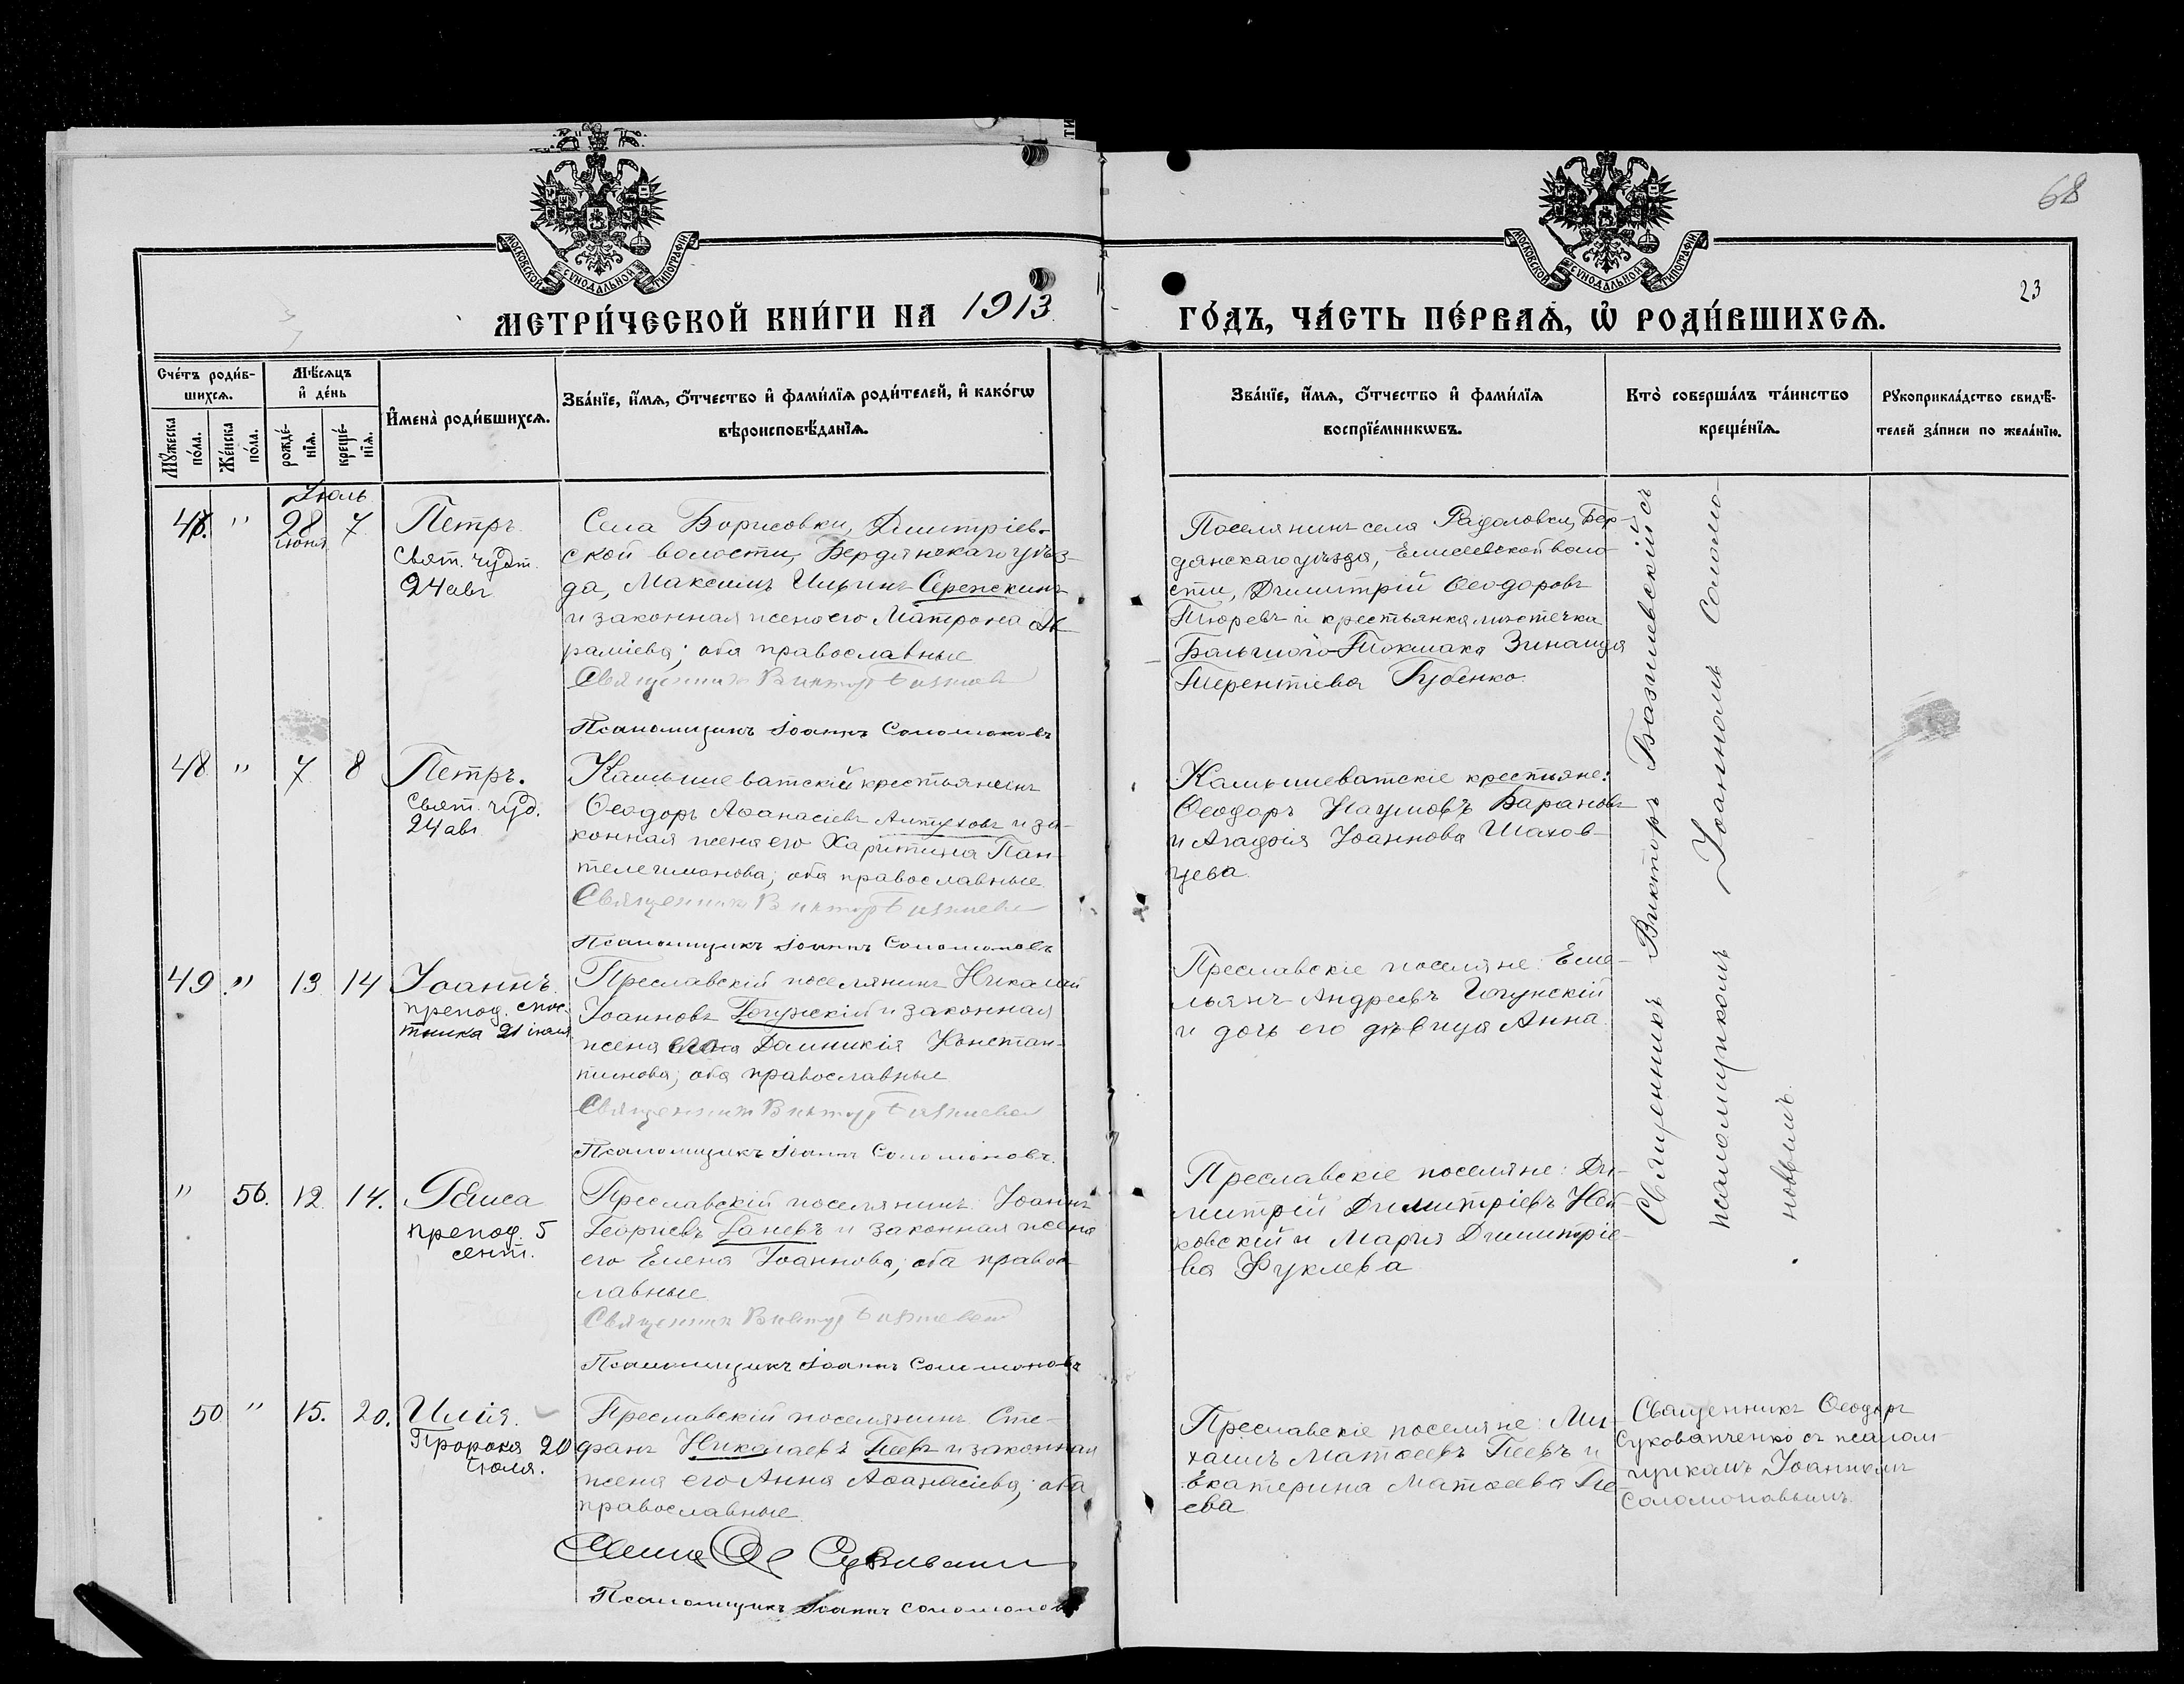 68
23
МОСКОВСКОЙ СѴНОДАЛЬНОЙ ТИПОГРАФІИ
МОСКОВСКОЙ СѴНОДАЛЬНОЙ ТИПОГРАФІИ
МЕТРИ́ЧЕСКОЙ КНИ́ГИ НА 1913
ГО́ДЪ, ЧА́СТЬ ПЕ́РВАѦ, Ѡ҆ РОДИ́ВШИХСѦ.
Сче́тъ роди́в-
шихсѧ.
Мꙋ́жеска по́ла.
Же́нска по́ла.
Мѣ́сѧцъ
и҆ де́нь
рожде́-
нїѧ.
креще́-
нїѧ.
И҆мена̀ роди́вшихсѧ.
Зва́нїе, и҆́мѧ, ѻ҆́тчество и҆ фами́лїѧ роди́телей, и҆ како́гѡ
вѣроисповѣ́данїѧ.
Зва́нїе, и҆́мѧ, ѻ҆́тчество и҆ фами́лїѧ
воспрїе́мникѡвъ.
Кто̀ соверша́лъ та́инство
креще́нїѧ.
Рꙋкоприкла́дство свидѣ́-
телей за́писи по жела́нїю.
Іюль
47. " 28 7
іюня
Петръ.
Свят. чудт.
24 авг
Села Борисовки, Димитріев-
ской волости, Бердянскаго уѣз-
да, Максимъ Ильинъ Сережкинъ
и законная жена его Матрона Ав-
раміева; оба православные
Священникъ Викторъ
Псаломщикъ Іоаннъ Соломоновъ
Поселянинъ села Радоловки, Бер-
дянскаго уѣзда, Елисеевской воло-
сти, Димитрій Ѳеодоровъ
Тюревъ и крестьянка мѣстечка
Большого-Токмака Зинаида
Терентіева Губенко.
48 " 7 8
Петръ.
Свят. чуд.
24 авг
Камышеватскій крестьянинъ
Ѳеодоръ Аѳанасіевъ Алтуховъ и за-
конная жена его Харитина Пан-
телеимонова; оба православные
Священникъ Викторъ
Псаломщикъ Іоаннъ Соломоновъ
Камышеватскіе крестьяне:
Ѳеодоръ Наумовъ Барановъ
и Агафія Іоаннова Шахов-
цева.
49 " 13 14
Іоаннъ.
препод. спос-
тника 21 іюля
Преславскій поселянинъ Николай
Іоанновъ Гогунскій и законная
жена его Домникія Констан-
тинова; оба православные
Священникъ Викторъ
Псаломщикъ Іоаннъ Соломоновъ.
Преславскіе поселяне: Еме-
льянъ Андреевъ Гогунскій
и дочь его дѣвица Анна.
" 56. 12. 14.
Раиса
препод. 5
сент.
Преславскій поселянинъ Іоаннъ
Георгіевъ Ганевъ и законная жена
его Елена Іоаннова; оба правос-
лавные
Священникъ Викторъ
Псаломщикъ Іоаннъ Соломоновъ
Преславскіе поселяне: Ди-
митрій Димитріевъ Ней-
ковскій и Марія Димитріе-
ва Фуклева
Священникъ Викторъ Базилевскій съ
псаломщикомъ Іоанномъ Соломо-
новымъ.
50 " 15. 20.
Илія.
Пророка 20
іюля.
Преславскій поселянинъ Сте-
фанъ Николаевъ Пеевъ и законная
жена его Анна Аѳанасіева; оба
православные.
Псаломщикъ Іоаннъ Соломоновъ
Преславскіе поселяне: Ми-
хаилъ Матѳеевъ Пеевъ и
Екатерина Матѳеева Пе-
ева
Священникъ Ѳеодоръ
Сукованченко съ псалом-
щикомъ Іоанномъ
Соломоновымъ.